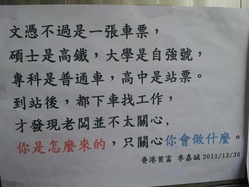 文憑不過是一張車票，
碩士是高鐵，大學是自強號，
專科是普通車，高中是站票。
到站後，都下車找工作，
才發現老闆並不太關心，
你是怎麼來的，只關心你會做什麼。
香港首富 李嘉誠 2011/12/30